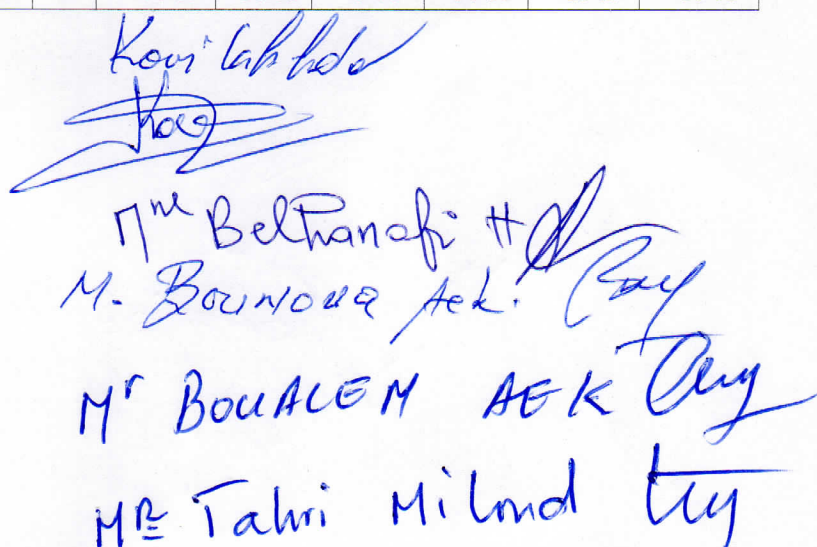 Kouilakhdar
Mme Belhanafi H
M. Bounoua Aek.
Mr BOUALEM AEK
MR Tahri Miloud